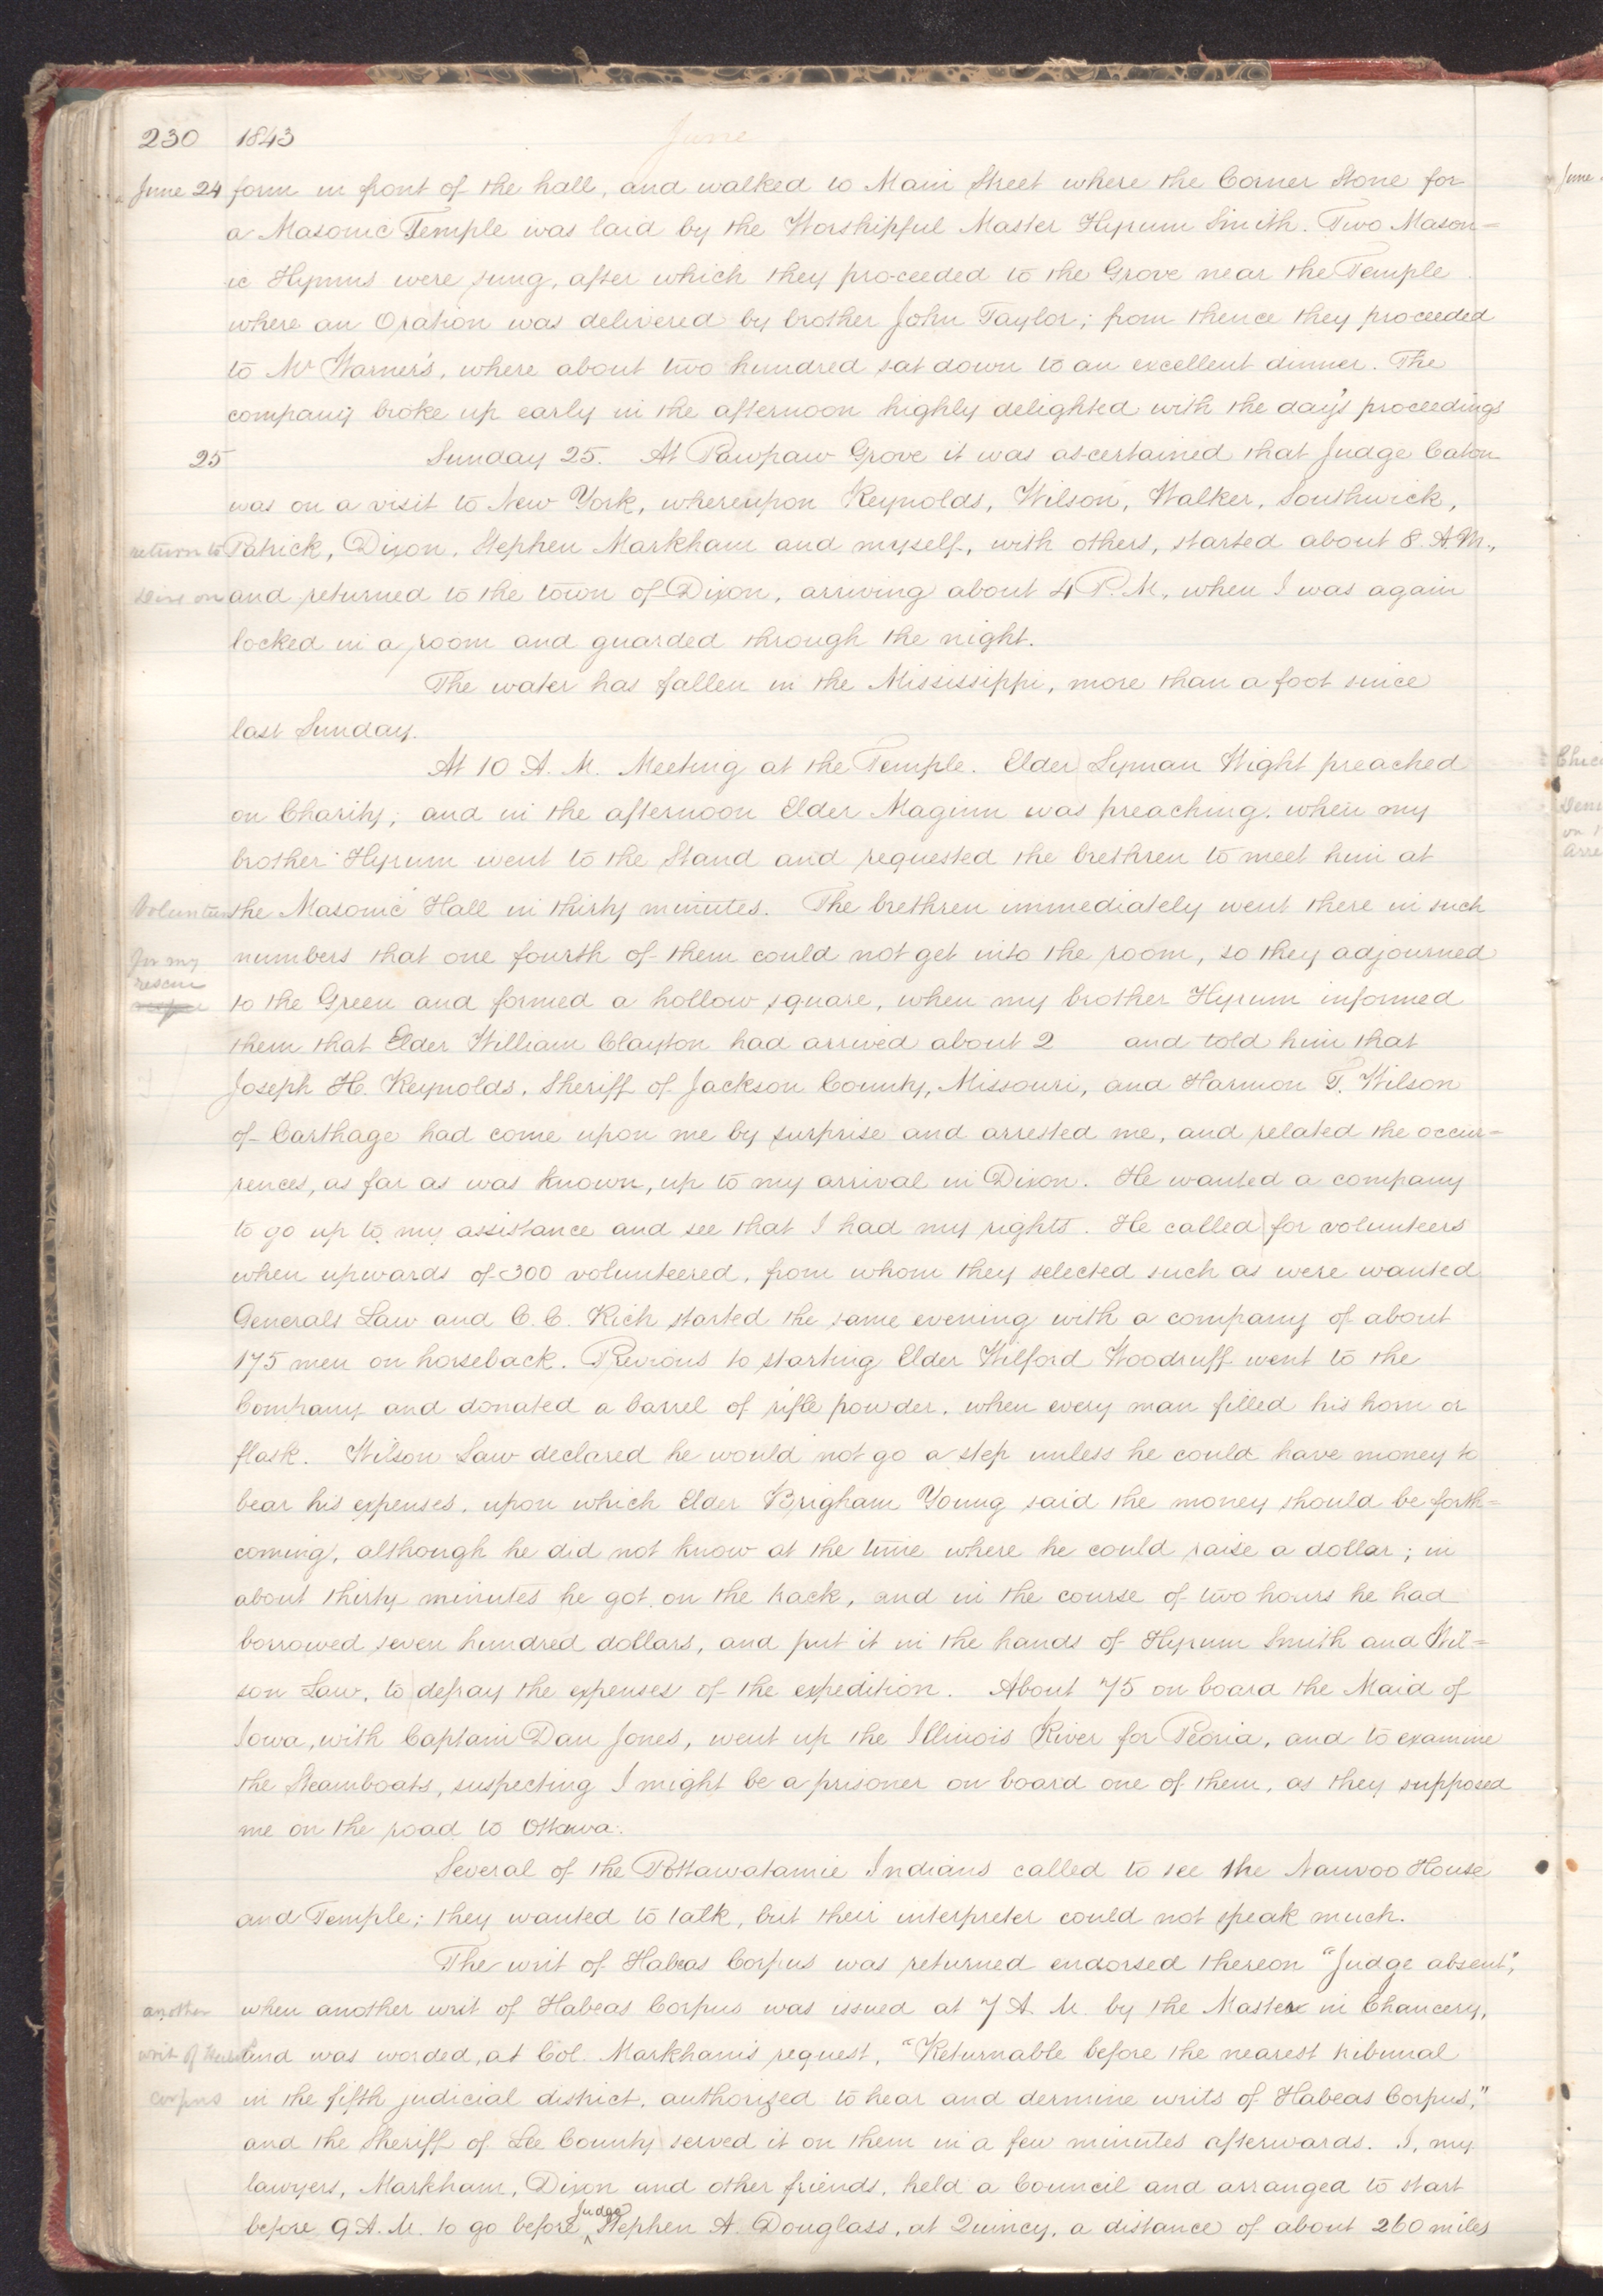 230 1843 June
June 24 form in front of the hall, and walked to Main Street where the Corner Stone for
a Masonic Temple was laid by the Worshipful Master Hyrum Smith. Two Mason=
ic Hymns were sung, after which they proceeded to the Grove near the Temple
where an Oration was delivered by brother John Taylor; from thence they proceeded
to Mr Warner's, where about two hundred sat down to an excellent dinner. The
company broke up early in the afternoon highly delighted with the day's proceedings
25 Sunday 25. At Pawpaw Grove it was ascertained that Judge Caton
was on a visit to New York, whereupon Reynolds, Wilson, Walker, Southwick,
return to Patrick, Dixon, Stephen Markham and myself, with others, started about 8. A.M.,
Dixon and returned to the town of Dixon, arriving about 4 P.M, when I was again
locked in a room and guarded through the night.
The water has fallen in the Mississippi, more than a foot since
last Sunday.
At 10 A. M. Meeting at the Temple. Elder Lyman Wight preached
on Charity; and in the afternoon Elder Maginn was preaching, when my
brother Hyrum went to the Stand and requested the brethren to meet him at
the Masonic Hall in thirty minutes. The brethren immediately went there in such
for my numbers that one fourth of them could not get into the room, so they adjourned
rescue
to the Green and formed a hollow square, when my brother Hyrum informed
them that Elder William Clayton had arrived about 2 and told him that
Joseph H. Reynolds, Sheriff of Jackson County, Missouri, and Harmon T. Wilson
of Carthage had come upon me by surprise and arrested me, and related the occur=
rences, as far as was known, up to my arrival in Dixon. He wanted a company
to go up to my assistance and see that I had my rights. He called for volunteers
when upwards of 300 volunteered, from whom they selected such as were wanted
Generals Law and C. C. Rich started the same evening with a company of about
175 men on horseback. Previous to starting Elder Wilford Woodruff went to the
Company and donated a barrel of rifle powder, when every man filled his horn or
flask. Wilson Law declared he would not go a step unless he could have money to
bear his expenses, upon which Elder Brigham Young said the money should be forth=
coming, although he did not know at the time where he could raise a dollar; in
about thirty minutes he got on the track, and in the course of two hours he had
borrowed seven hundred dollars, and put it in the hands of Hyrum Smith and Wil=
son Law, to defray the expenses of the expedition. About 75 on board the Maid of
Iowa, with Captain Dan Jones, went up the Illinois River for Peoria, and to examine
the Steamboats, suspecting I might be a prisoner on board one of them, as they supposed
me on the road to Ottawa.
Several of the Pottawatamie Indians called to see the Nauvoo House
and Temple; they wanted to talk, but their interpreter could not speak much.
The writ of Habeas Corpus was returned endorsed thereon "Judge absent",
another when another writ of Habeas Corpus was issued at 7 A. M. by the Master in Chancery,
writ of and was worded, at Col. Markham's request, "Returnable before the nearest tribunal
corpus in the fifth judicial district, authorized to hear and dermine writs of Habeas Corpus,"
and the Sheriff of Lee County served it on them in a few minutes afterwards. I, my
lawyers, Markham, Dixon and other friends, held a Council and arranged to start
before 9 A. M. to go before Judge Stephen A. Douglass, at Quincy, a distance of about 260 miles